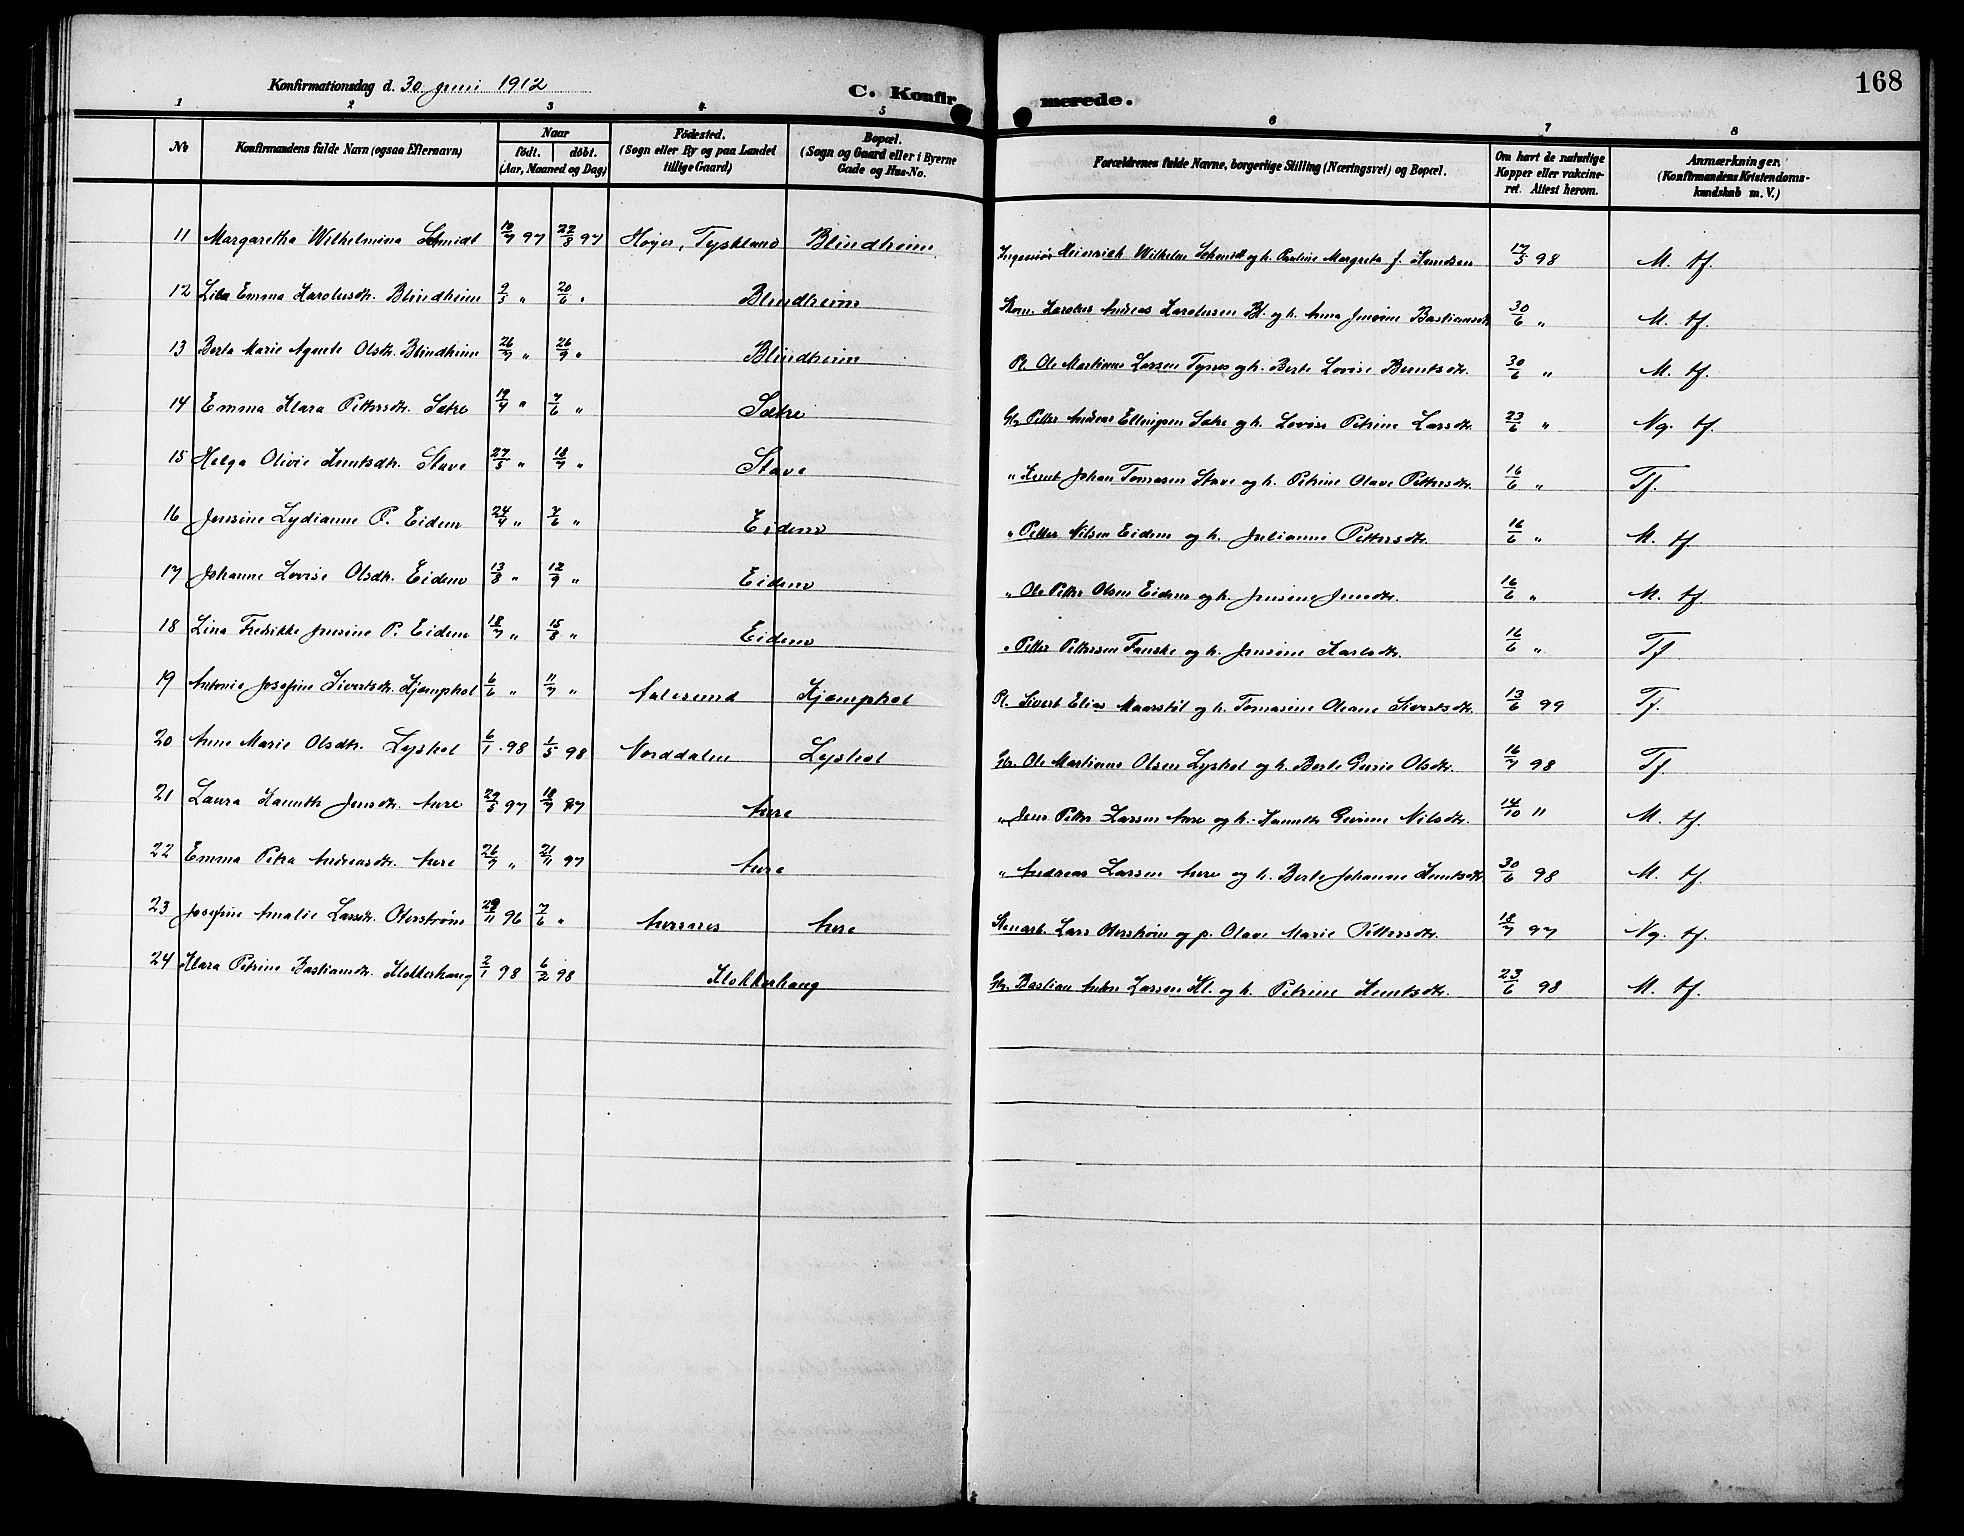 168
Konfirmationsdag d. 30 juni 1912
C. Konfirmerede.
1 2 3 4 5 6 7 8
No
Konfirmandens fulde Navn (ogsaa Efternavn)
Naar
födt. döbt.
(Aar, Maaned og Dag)
Födested.
(Sogn eller By og paa Landet tillige Gaard)
Bopæl.
(Sogn og Gaard eller i Byerne Gade og Hus-No.
Forældrenes fulde Navne, borgerlige Stilling (Næringsvei) og Bopæl.
Om havt de naturlige Kopper eller vakcineret. Attest herom.
Anmærkninger.
(Konfirmandens Kristendomskundskab m. V.)
11 Margaretha Wilhelmina Schmidt 97 22/8 97 Höyer, Tyskland Blindheim Ingeniör Heinrich Wilhelm Schmidt og h. Pauline Margreta f. Knudsen 17/5 98 M. tf.
12 Emma Karolusdtr. Blindheim 9/5 " 20/6 " Blindheim Karolus Andreas Karolusen Bl. og h. Anna Jensine Bastiansdtr. 30/6 " M. tf.
13 Berta Marie Agnete Olsdtr. Blindheim 26/7 " 26/9 " Blindheim Pl. Ole Martinus Larsen og h. Berte Lovise Berntsdtr. 30/6 " M. tf.
14 Emma Klara Pettersdtr. Sætre 19/4 " 7/6 " Sætre Gbr. Petter Andreas Ellingsen Sætre og h. Lovise Petrine Larsdtr. 23/6 " Ng. tf.
15 Helga Olivie Knutsdtr. Stave 27/5 " 18/7 " Stave " Knut Johan Tomasen Stave og h. Petrine Olave Pettersdtr. 16/6 " Tf.
16 Jensine Lydianne P. Eidem 24/4 " 7/6 " Eidem " Petter Nilsen Eidem og h. Julianne Pettersdtr. 16/6 " M. tf
17 Johanne Lovise Olsdtr. Eidem 13/8 " 12/9 " Eidem " Ole Petter Olsen Eidem og h. Jensine Jensdtr. 16/6 " M. tf.
18 Lina Fredrikke Jensine P. Eidem 18/7 " 15/8 " Eidem " Petter Pettersen Fauske og h. Jensine Karlsdtr. 16/6 " Tf
19 Antonie Josefine Sivertsdtr. Kjemphol 6/6 " 11/7 " Aalesund Kjemphol Pl. Sivert Elias Maarstöl og h. Tomasine Oleane Sivertsdtr. 13/6 99 Tf.
20 Anne Marie Olsdtr. Lyshol 6/1 98 1/5 98 Norddalen Lyshol Gbr. Ole Martinus Olsen Lyshol og h. Berte Olsdtr. 16/7 98 Tf.
21 Laura Jensdtr. Aure 29/5 97 18/7 97 Aure " Jens Petter Larsen Aure og h. Nilsdtr. 14/10 " M. tf.
22 Emma Petra Andreasdtr. Aure 26/7 " 21/11 97 Aure " Andreas Larsen Aure og h. Berte Johanne Knutsdtr 30/6 98 M. tf.
23 Josefine Amalie Larsdtr. Oterström 29/11 96 7/6 " Aure Lars Oterström og p. Olave Marie Pettersdtr. 18/7 97 Ng. tf.
24 Klara Petrine Bastiansdtr. Klokkerhaug 2/1 98 6/2 98 Klokkerhaug Gbr. Bastian Larsen Kl. og h. Petrine Knutsdtr. 23/6 98 M. tf.